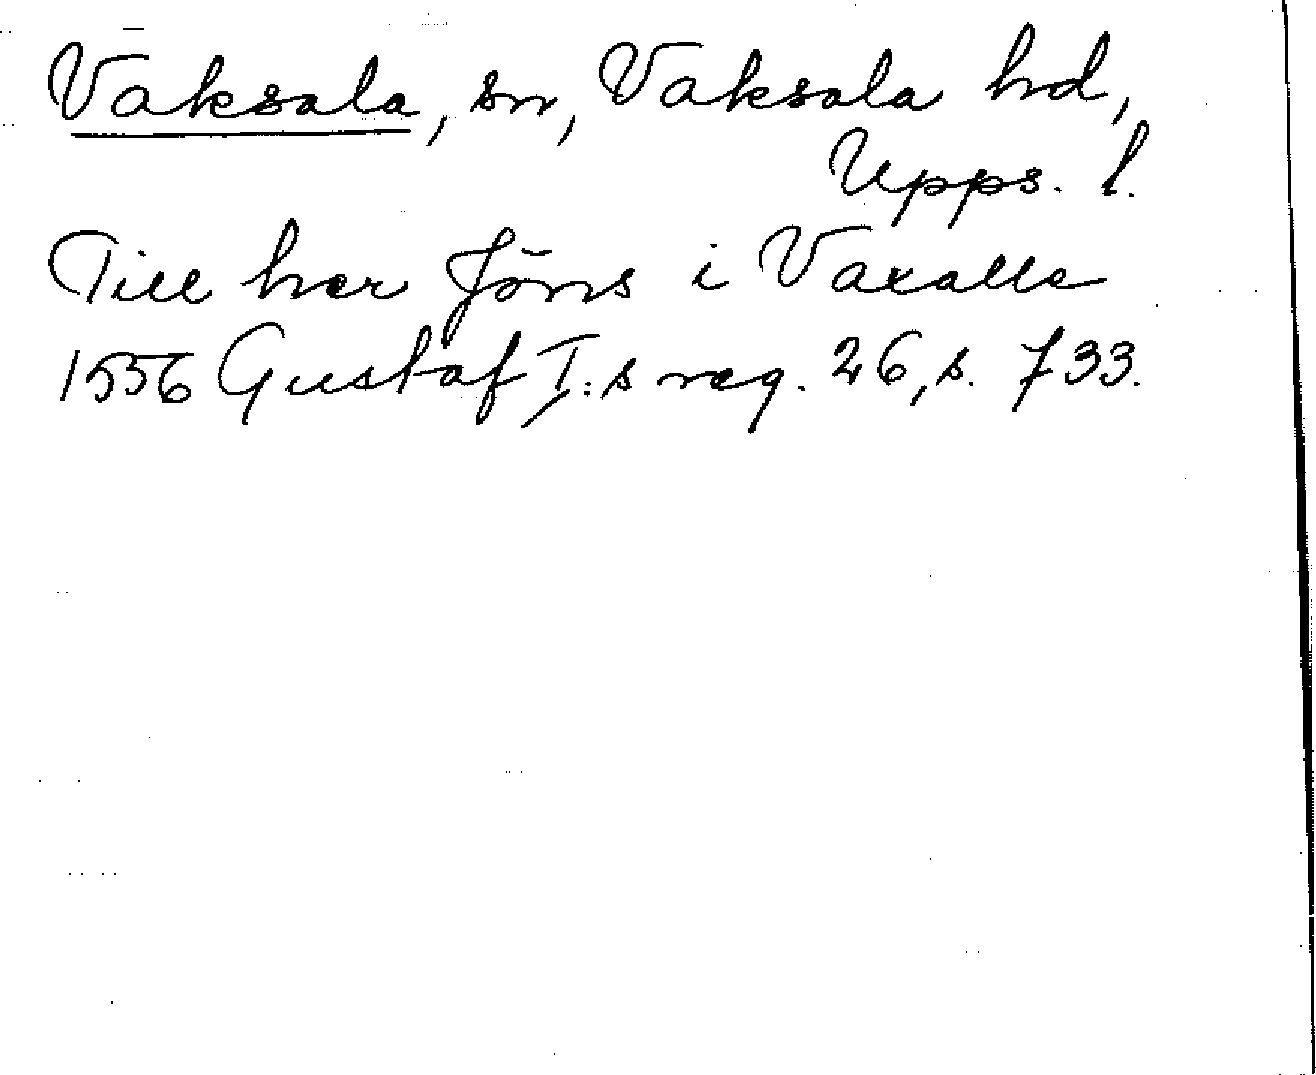 Vaksala, sn, Vaksala hd,
Upps. l.
Till her Jöns i Vaxalla
1556 Gustaf I:s reg. 26, s. 733.